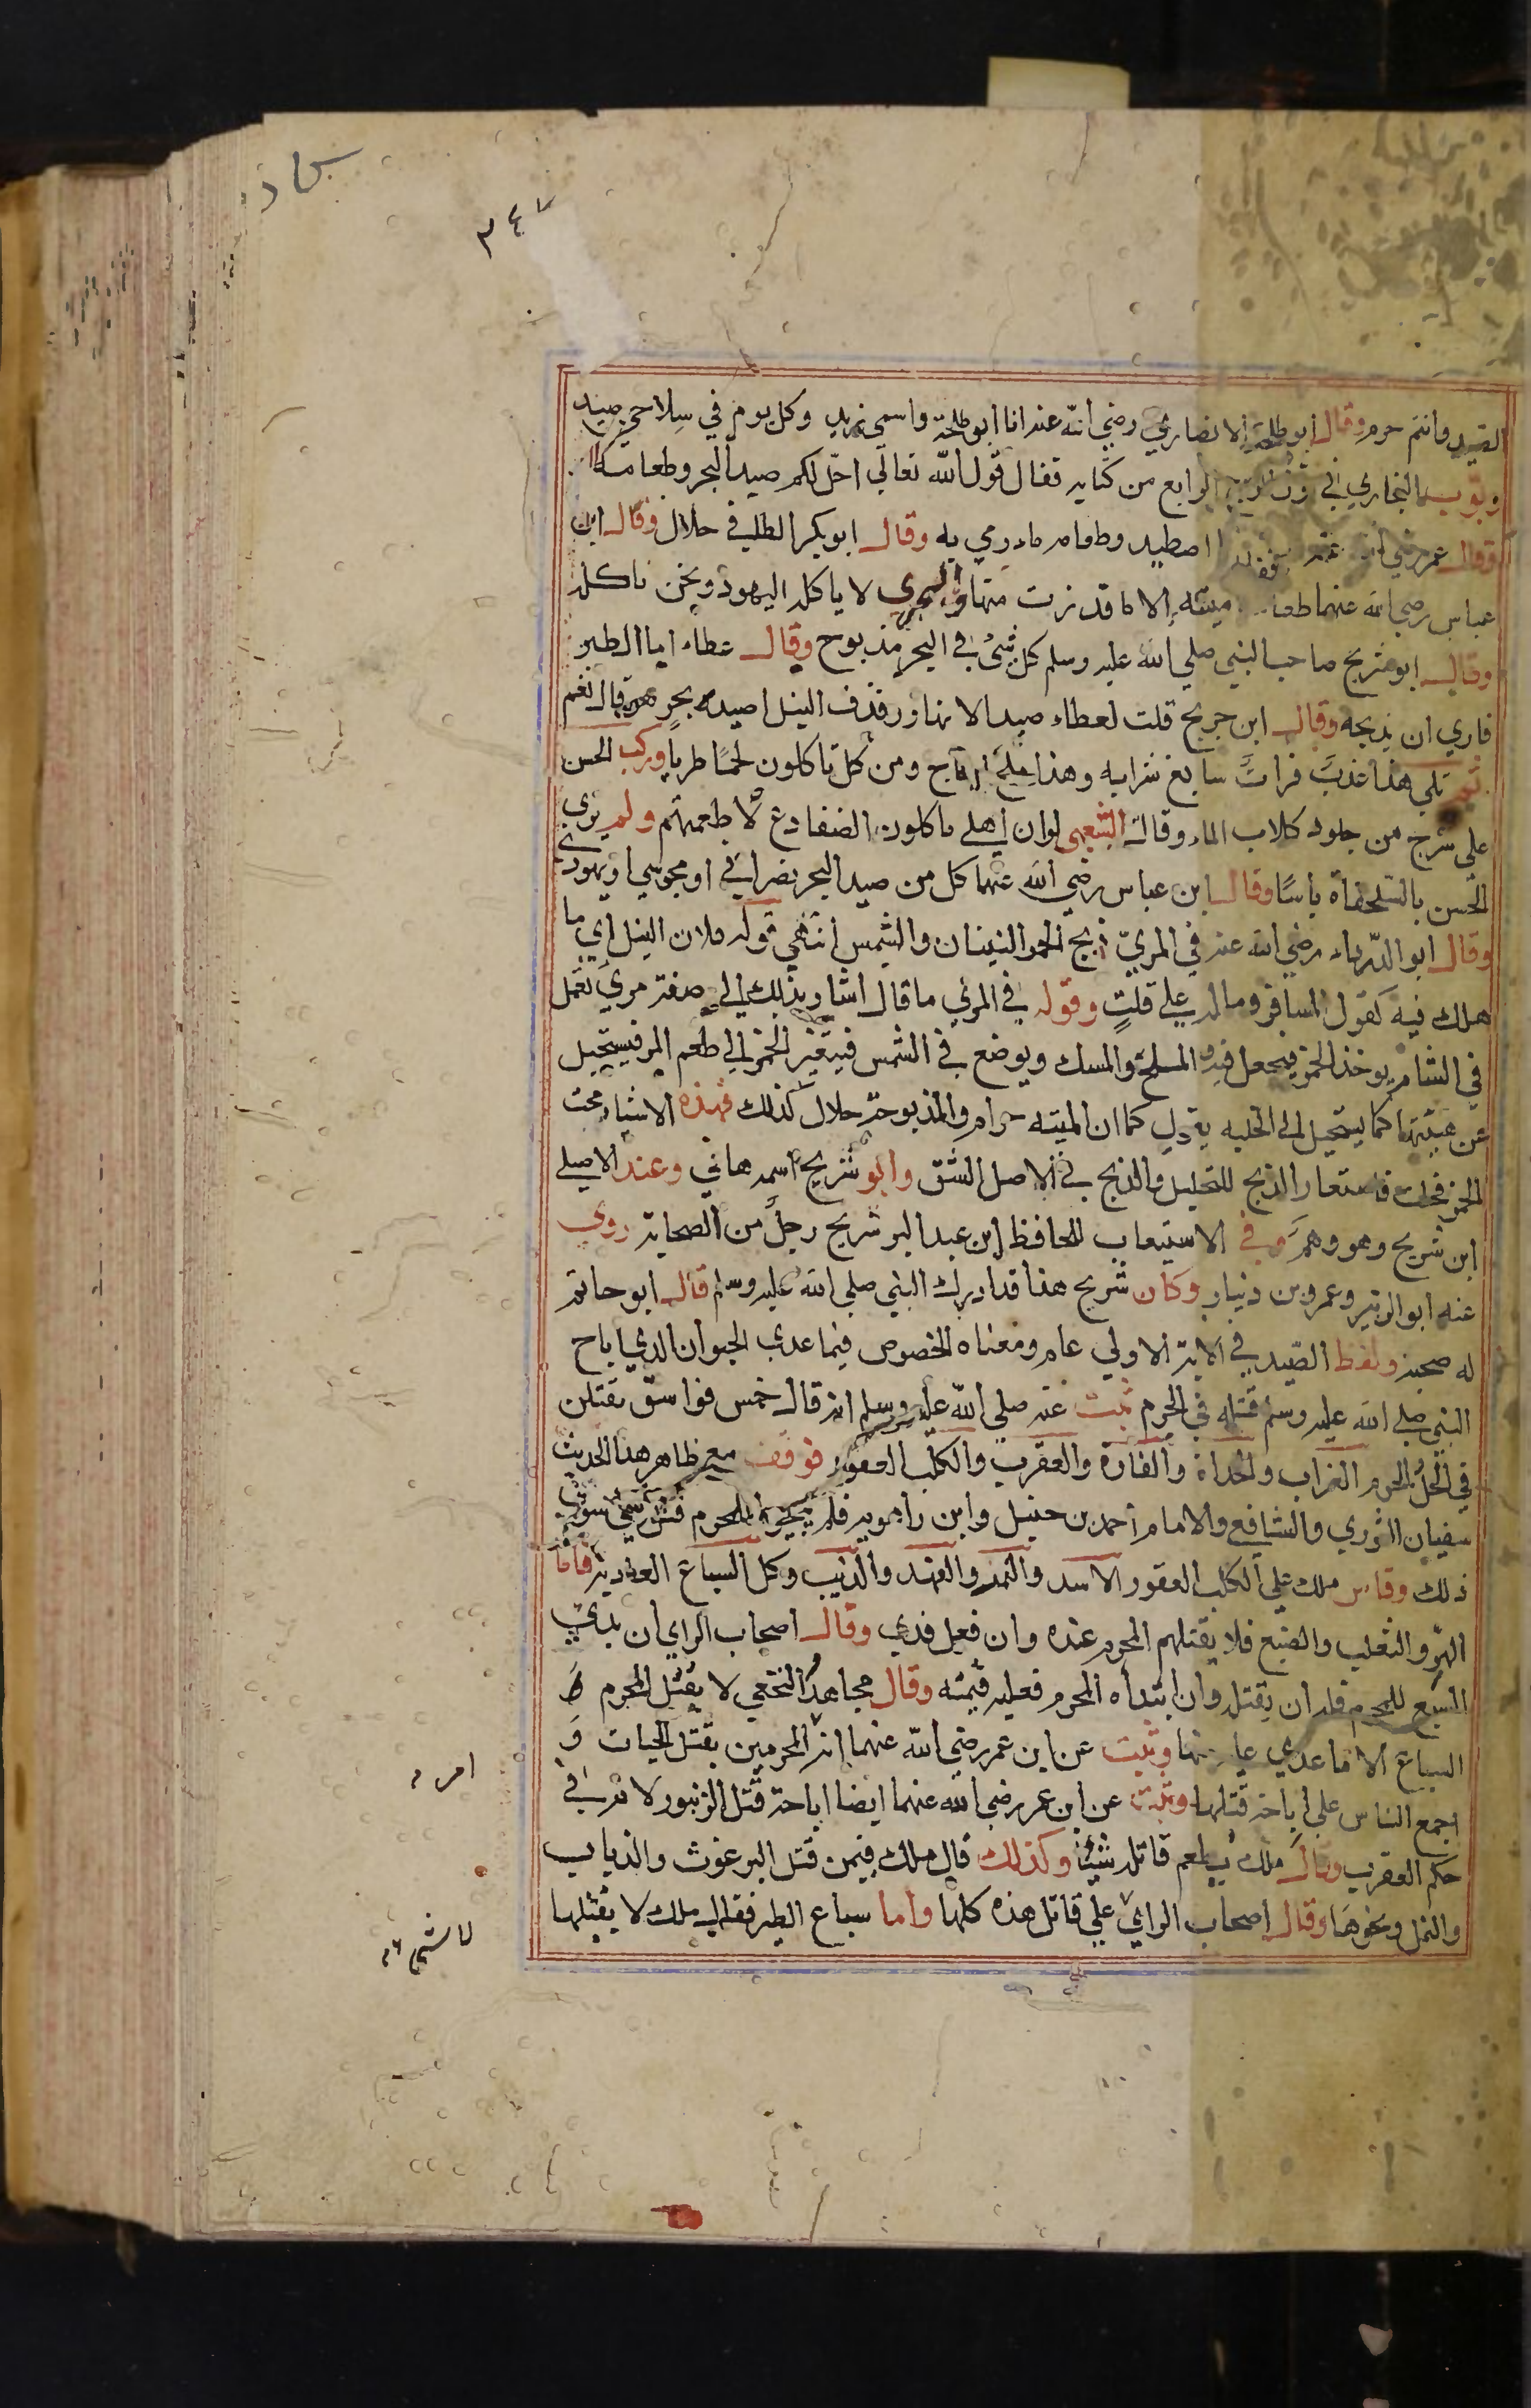 ٣٤٧
الصيد وانتم حرم وقال ابو طلحة الانصاري رضي الله عنه انا ابو طلحة واسمي زيد وكل يوم في سلاحي صيد
وبوب البخاري في الربع الرابع من كتابه فقال قول الله تعالي احل لكم صيد البحر وطعامه
وقال عمر رضي الله عنه اصطيد وطعامه ما رمي به وقال ابو بكر الطافي حلال وقال ابن
عباس رضي الله عنهما طعامه ميتته الا ما قدرت منها والجري لا ياكله اليهود ونحن ناكله
وقال ابو شريح صاحب النبي صلي الله عليه وسلم كل شئ في البحر مذبوح وقال عطاء اما الطير
فاري ان يذبحه وقال ابن جريج قلت لعطاء صيد الانهار وقذف النيل اصيد بحر هو قال نعم
ثم تلي هذا عذب فرات سايغ شرابه وهذا ملح اجاج ومن كل تاكلون لحما طريا وركب الحسن
علي سرج من جلود كلاب الماء وقال الشعبي لو ان اهلي ياكلون الضفادع لاطعمتهم ولم يري
الحسن بالسلحفاة باسا وقال ابن عباس رضي الله عنهما كل من صيد البحر نصراني او مجوسي او يهودي
وقال ابو الدرداء رضي الله عنه في المري ذبح الخمر النينان والشمس انتهي قوله قلات النيل اي ما
هلك فيه كقول المسافر وماله علي قلت وقوله في المري ما قال اشار بذلك الي صفة مري يعمل
في الشام يوخذ الخمر فيجعل فيه الملح والسمك ويوضع في الشمس فيتغير الخمر الي طعم المر فيستحيل
عن هيئتها كما يستحيل الي الخليه يقول كما ان الميته حرام والمذبوحة حلال كذلك فهذه الاشياء ذبحت
الخمر فحلت فاستعار الذبح للتحليل والذبح في الاصل الشق وابو شريح اسمه هاني وعند الاصيلي
ابن شريح وهو وهم وفي الاستيعاب للحافظ ابن عبد البر شريح رجل من الصحابة روي
عنه ابو الزبير وعمرو بن دينار وكان شريح هذا قد ادرك النبي صلي الله عليه وسلم قال ابو حاتم
له صحبة ولفظ الصيد في الاية الاولي عام ومعناه الخصوص فيما عدي الحيوان الذي اباح
النبي صلي الله عليه وسلم قتله في الحرم ثبت عنه صلي الله عليه وسلم انه قال خمس فواسق يقتلن
في الحل والحرم الغراب والحداة والفارة والعقرب والكلب العقور فوقف مع ظاهر هذا الحديث
سفيان الثوري والشافعي والامام احمد بن حنبل وابن راهويه فلم يبيحوا للمحرم قتل شئ سوي
ذلك وقاس ملك علي الكلب العقور الاسد والنمر والفهد والذيب وكل السباع العادية فاما
الهر والثعلب والضبع فلا يقتلهم المحرم عنده وان فعل فدي وقال اصحاب الراي ان بدي
السبع للمحرم فله ان يقتله وان ابتداه المحرم فعليه قيمته وقال مجاهد والنخعي لا يقتل المحرم من
السباع الا ما عدي عليه منها وثبت عن ابن عمر رضي الله عنهما انه امر المحرمين بقتل الحيات و
اجمع الناس علي اباحة قتلها وثبت عن ابن عمر رضي الله عنهما ايضا اباحة قتل الزنبور لانه في
حكم العقرب وقال ملك يطعم قاتله شيئا وكذلك قال ملك فيمن قتل البرغوث والذباب
والنمل ونحوها وقال اصحاب الراي علي قاتل هذه كلها واما سباع الطير فقال ملك لا يقتلها
امر
لا شي